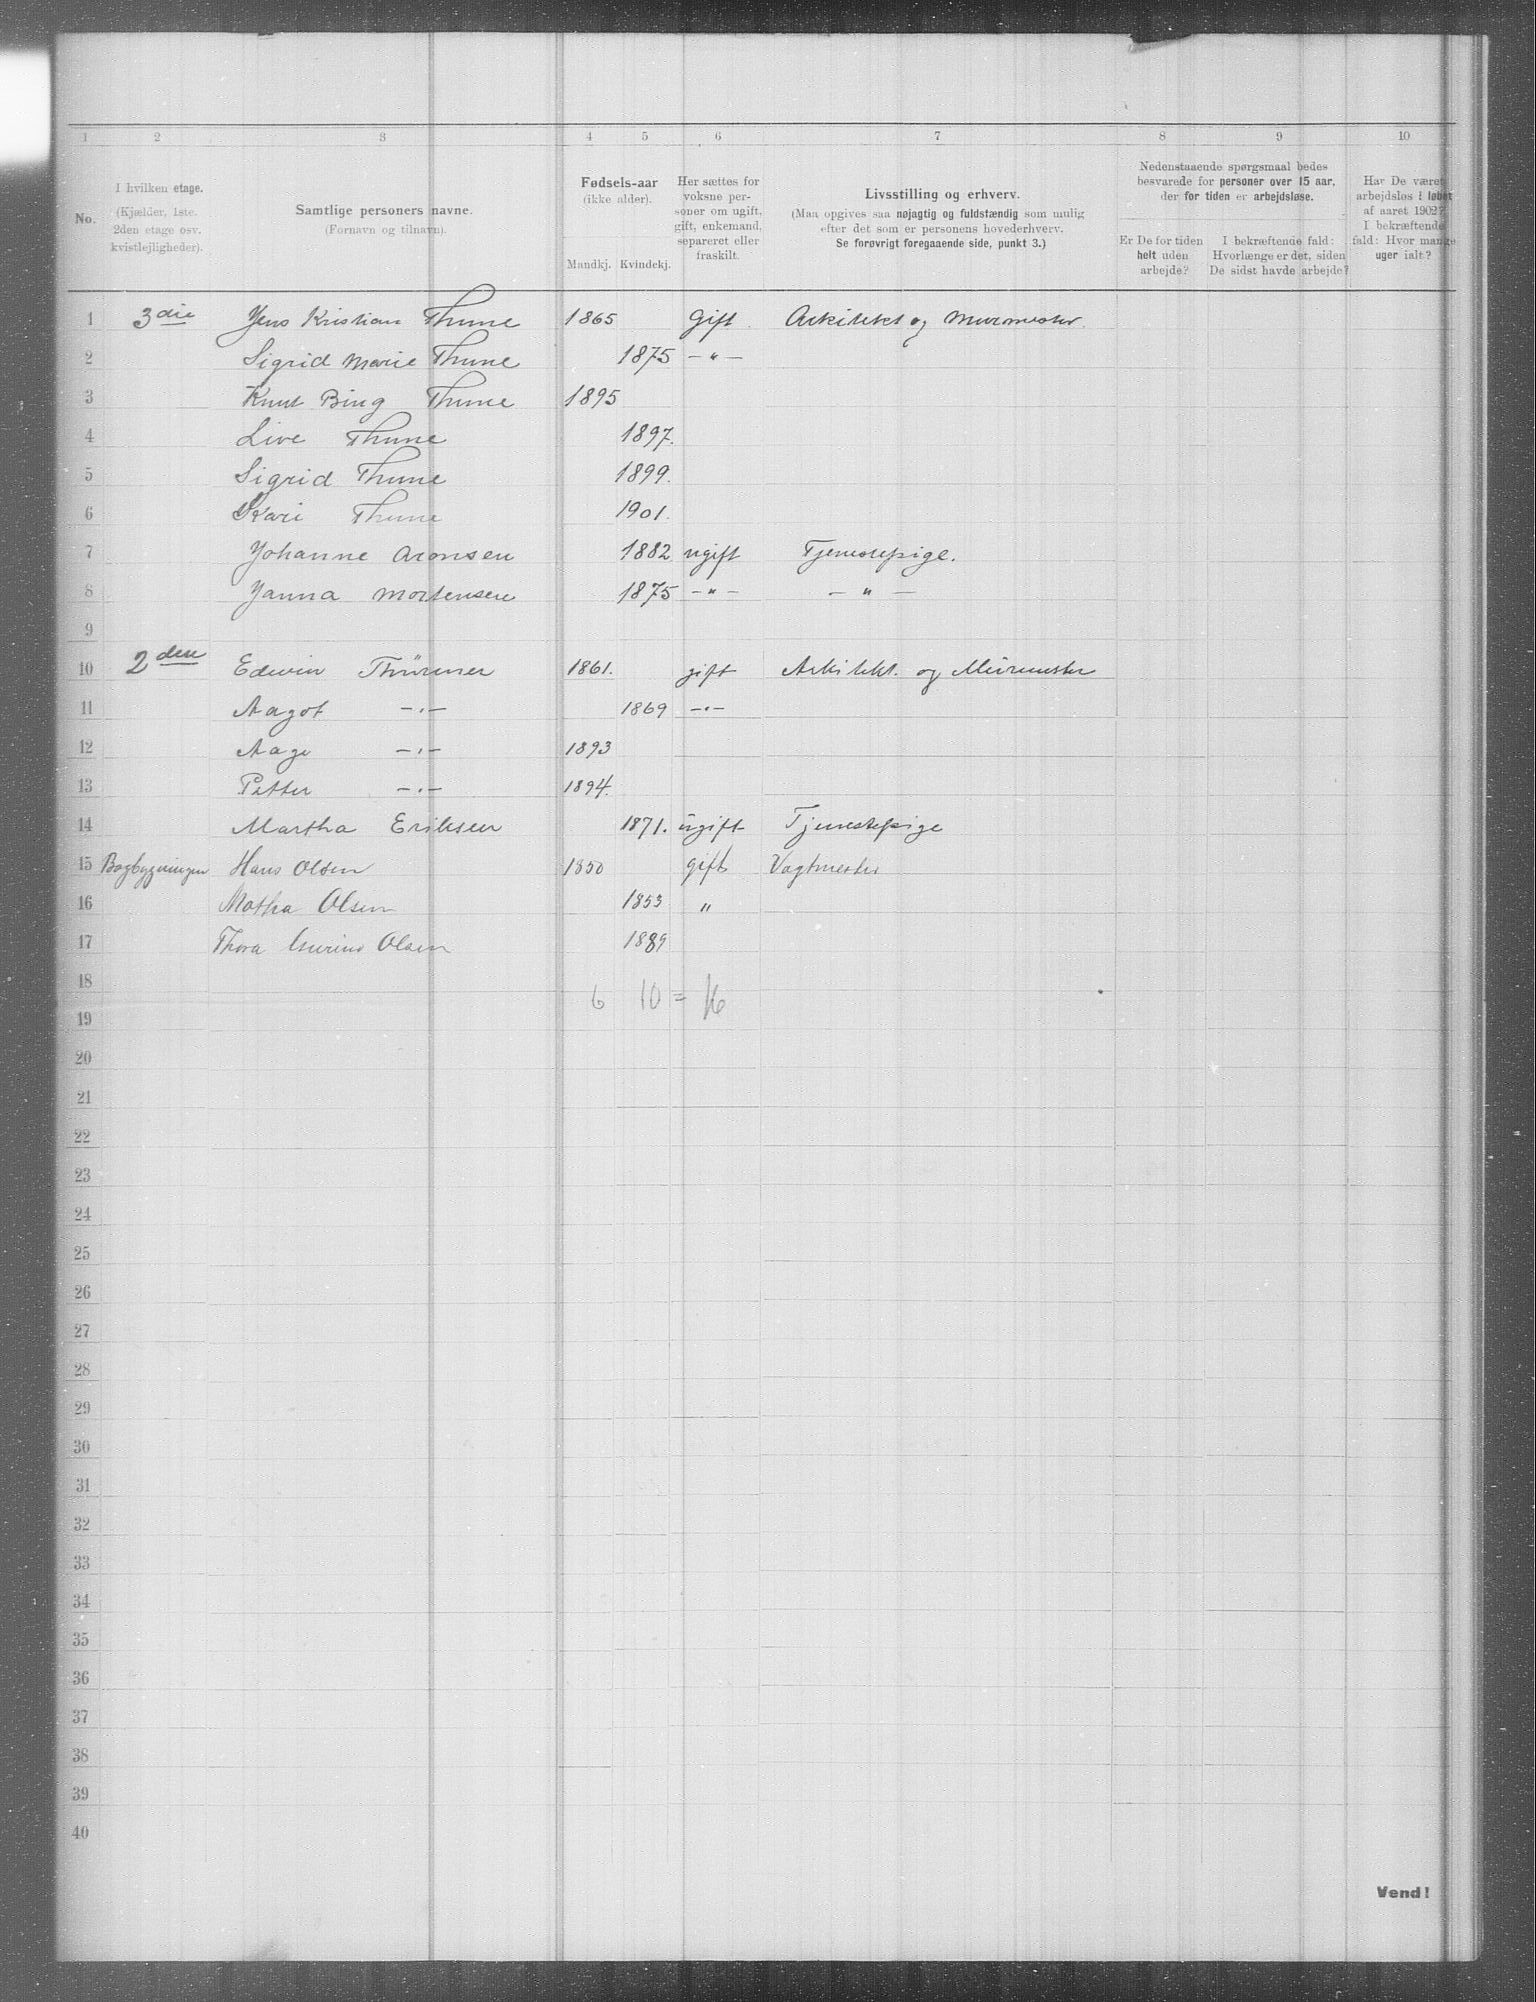 1 2 3 4 5 6 7 8 9 10
No.
I hvilken etage.
(Kjælder, 1ste.
2den etage osv.
kvistlejligheder).
Samtlige personers navne.
(Fornavn og tilnavn).
Fødsels-aar
(ikke alder).
Mandkj. Kvindekj.
Her sættes for
voksne per-
soner om ugift,
gift, enkemand,
separeret eller
fraskilt.
Livsstilling og erhverv.
(Maa opgives saa nøjagtig og fuldstændig som mulig
efter det som er personens hovederhverv.
Se forøvrigt foregaaende side, punkt 3.)
Nedenstaaende spørgsmaal bedes
besvarede for personer over 15 aar,
der for tiden er arbejdsløse.
Er De for tiden
helt uden
arbejde?
I bekræftende fald:
Hvorlænge er det, siden
De sidst havde arbejde?
Har De været
arbejdsløs i løbet
af aaret 1902?
I bekræftende
fald: Hvor mange
uger ialt?
1 3die Jens Kristian Thune 1865 Gift Arkitekt og Murmester.
2 Sigrid Marie Thune 1875 —"—
3 Knut Bing Thune 1895
4 Live Thune 1897.
5 Sigrid Thune 1899.
6 Kari Thune 1901.
7 Johanne Aronsen 1882 ugift Tjenestepige.
8 Janna Mortensen 1875 —"— —"—
9
10 2den Edwin Thürmer 1861. gift Arkitekt. og Murmester
11 Aagot —"— 1869 —"—
12 Aage —"— 1893
13 Petter —"— 1894.
14 Martha Eriksen 1871. ugift Tjenestepige
15 Bagbygningen Hans Olsen 1850 gift Vagtmester
16 Matha Olsen 1853 "
17 Thora Olsen 1889
18
6 10 = 16
19
20
21
22
23
24
25
26
27
28
29
30
31
32
33
34
35
36
37
38
39
40
Vend!